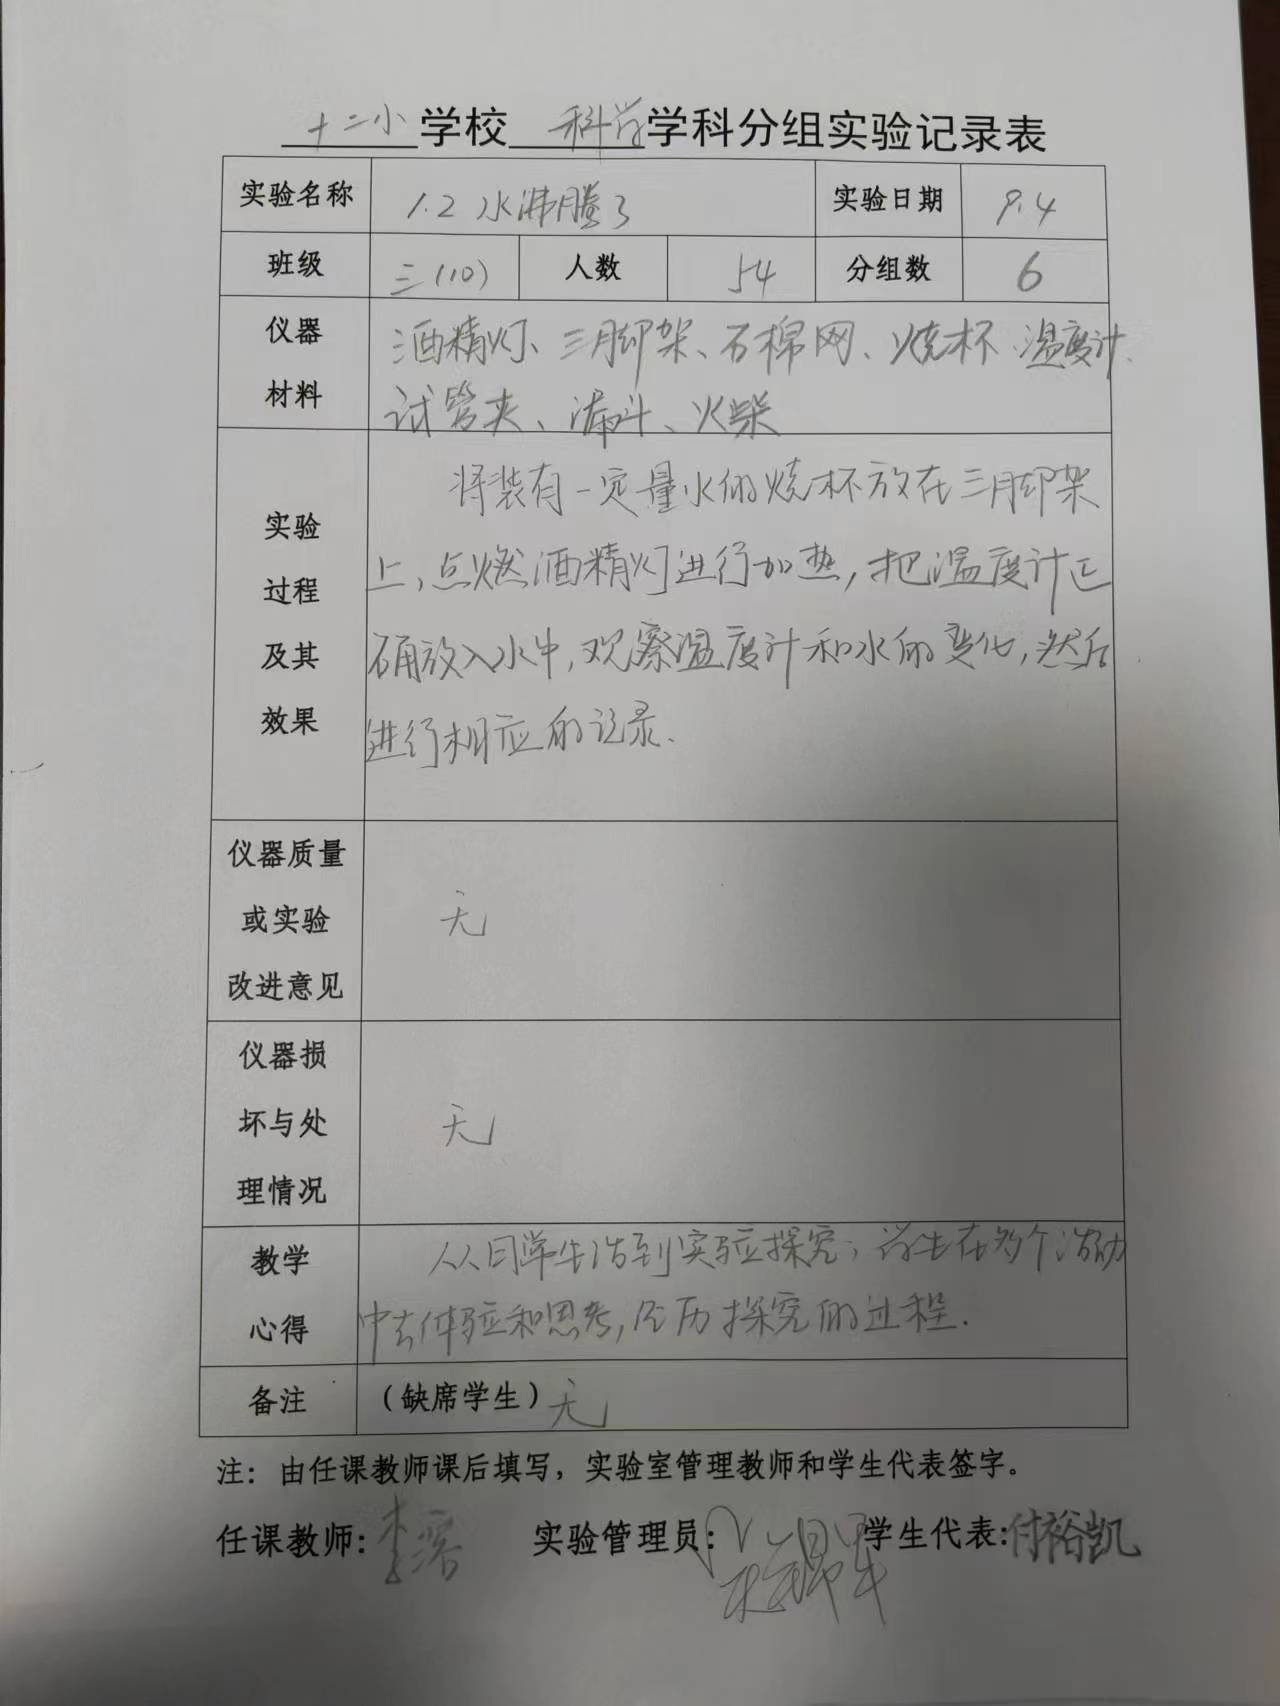 十二小学校 科学学科分组实验记录表
实验名称 1.2 水沸腾了 实验日期 9.4
班级 三(10) 人数 54 分组数 6
仪器材料
酒精灯、三脚架、石棉网、烧杯、温度计、
试管夹、漏斗、火柴
实验过程及其效果
将装有一定量水的烧杯放在三脚架
上,点燃酒精灯进行加热,把温度计正
确放入水中,观察温度计和水的变化,然后
进行相应的记录.
仪器质量或实验改进意见
无
仪器损坏与处理情况
无
教学心得
从日常生活到实验探究,学生在多个活动
中去体验和思考,经历探究的过程.
备注 (缺席学生)无
注：由任课教师课后填写，实验室管理教师和学生代表签字。
任课教师: 李溶 实验管理员: 学生代表:付裕凯